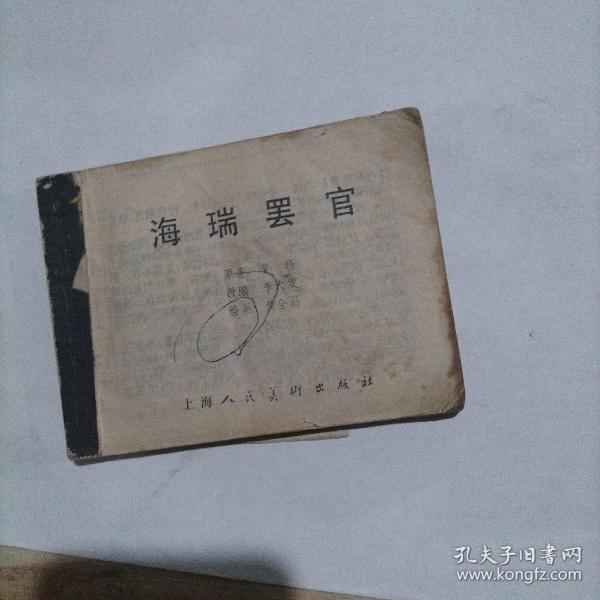 海瑞罢官
原著
改编 李大发
绘画
上海人民美術出版社
孔夫子旧書网
www.kongfz.com